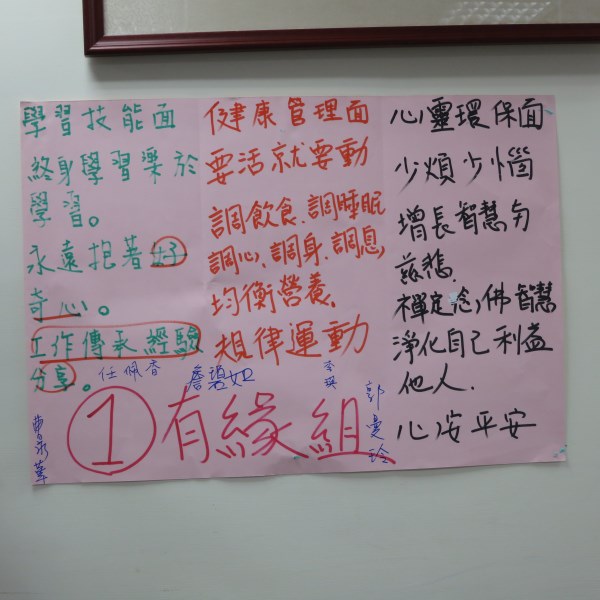 學習技能面
終身學習樂於
學習。
永遠抱著好
奇心。
工作傳承經驗
分享。
健康管理面
要活就要動
調飲食、調睡眠
調心、調身、調息
均衡營養、
規律運動
心靈環保面
少煩少惱
增長智慧與
慈悲、
禪定念佛智慧
淨化自己利益
他人、
心安平安
任佩香
詹碧如
郭曼玲
①有緣組